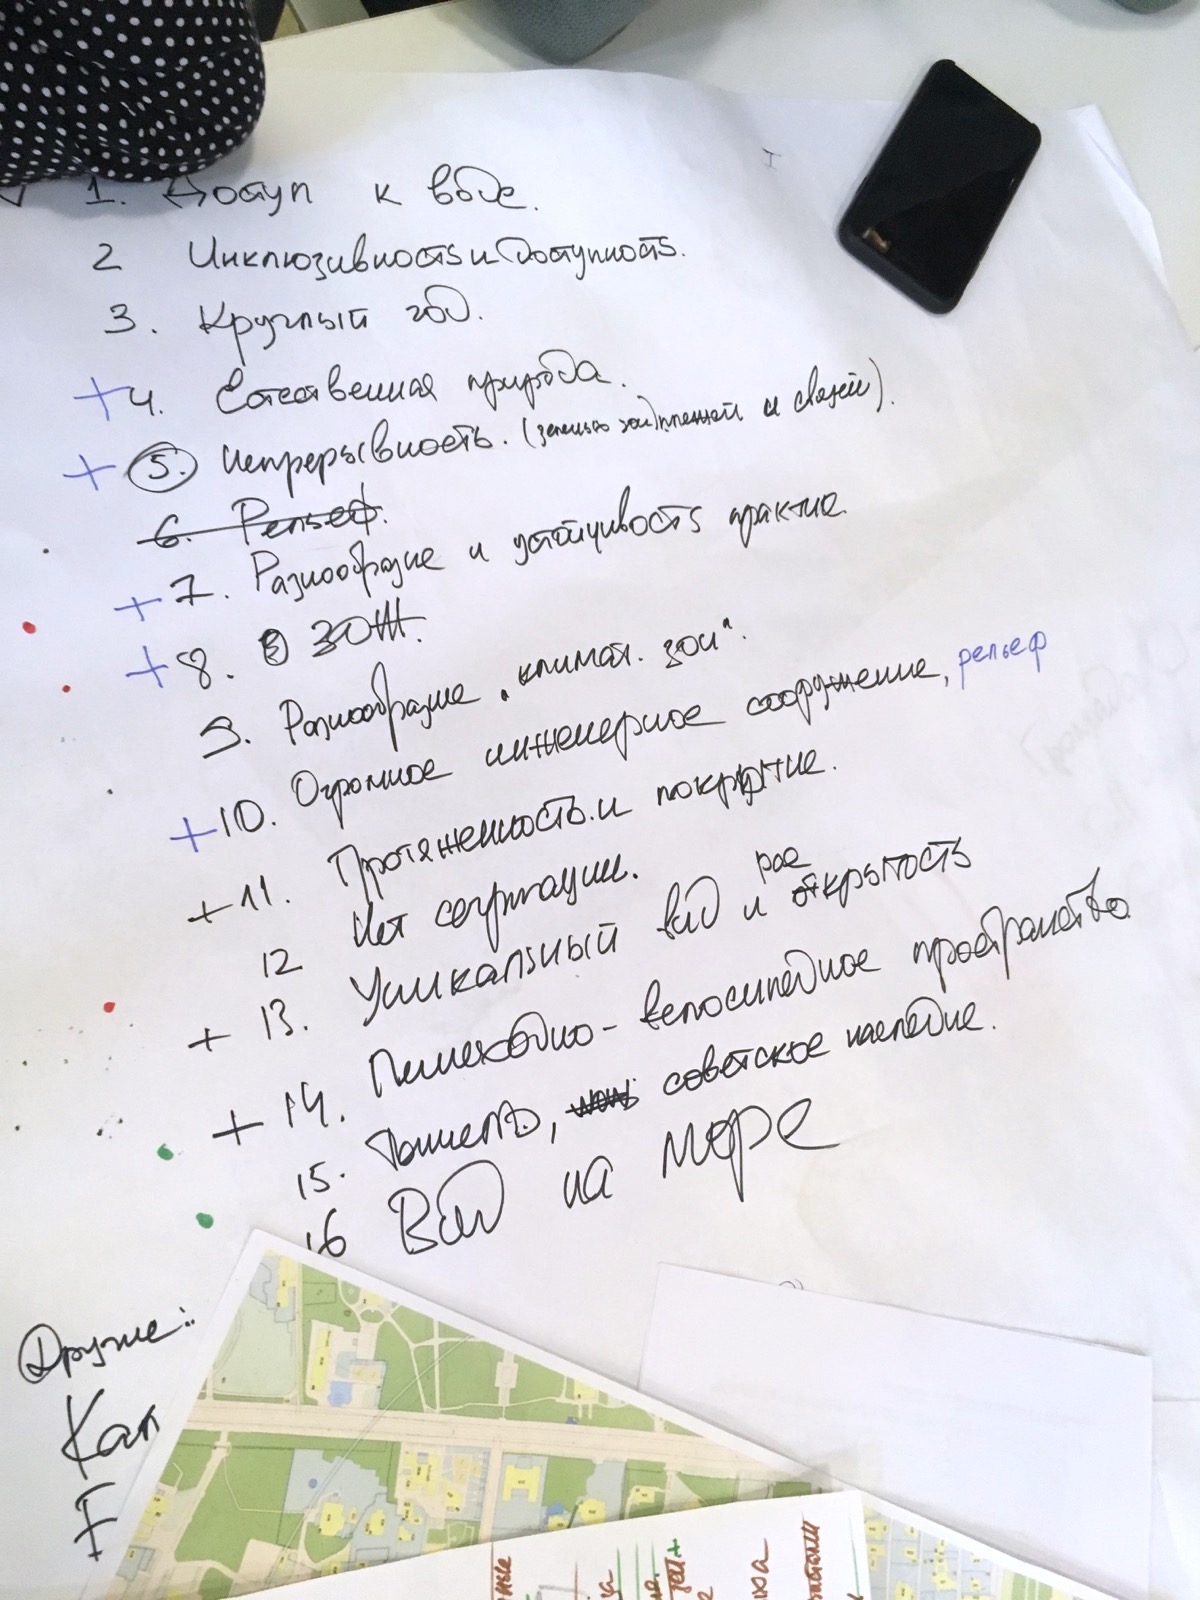 1. Доступ к воде.
2 Инклюзивность и доступность.
3. Круглый год.
+ 4. Естественная природа.
+ 5. Непрерывность. (зеленых зон) и связей).
6. Рельеф.
+ 7. Разнообразие и устойчивость практик.
+ 8. ЗОЖ.
9. Разнообразие "климат. зон".
+ 10. Огромное инженерное сооружение, рельеф
+ 11. Протяженность и покрытие.
12 Нет сегрегации.
рас
+ 13. Уникальный вид и открытость
+ 14. Пешеходно-велосипедное пространство
15. советское наследие.
16 Вид на море
Другие:
Кап